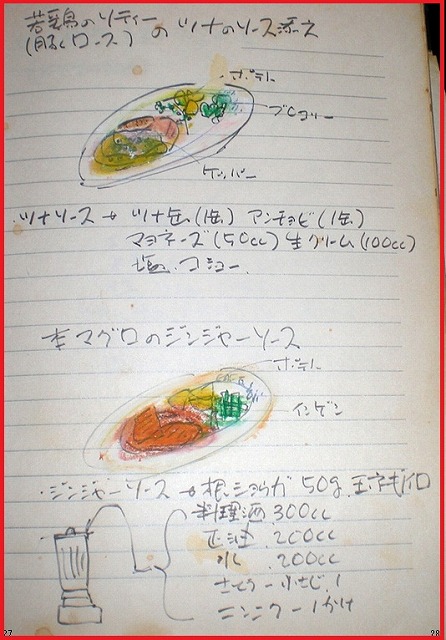 若鶏のソティー
(豚ロース) の ツナのソース添え
ポテト
ブロッコリー
ケッパー
・ツナソース → ツナ缶(1缶) アンチョビ(1缶)
マヨネーズ(50cc) 生クリーム(100cc)
塩、コショー
本マグロのジンジャーソース
ポテト
インゲン
・ジンジャーソース → 根ショウガ 50g 玉ネギ
料理酒 300cc
正油 200cc
水 200cc
小さじ 1
ニンニク 1かけ
27
28